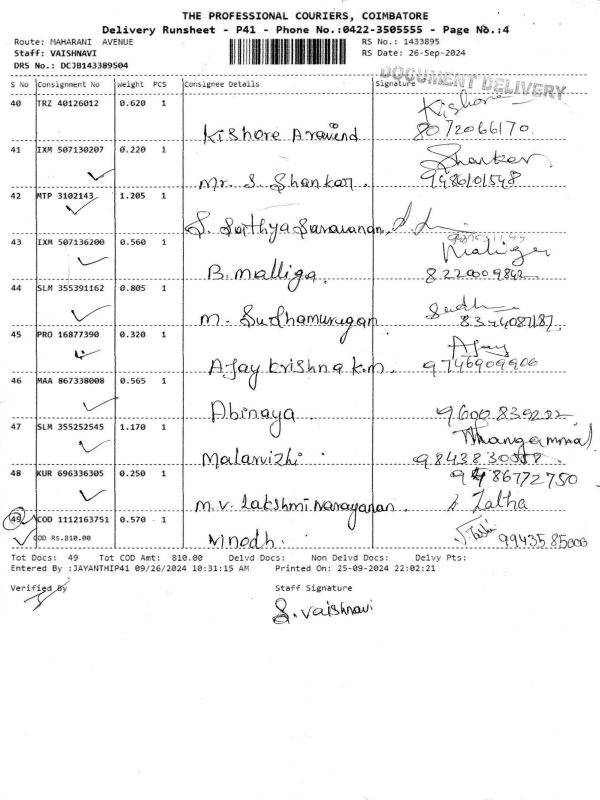 THE PROFESSIONAL COURIERS, COIMBATORE
Delivery Runsheet - P41 - Phone No.:0422-3505555 - Page No.:4
Route: MAHARANI AVENUE RS No.: 1433895
Staff: VAISHNAVI RS Date: 26-Sep-2024
DRS No.: DCJB143389504
DOCUMENT DELIVERY
S No Consignment No Weight PCS Consignee Details Signature
40 TRZ 40126012 0.620 1 Kishore
Kishore Aravind 8072066170
41 IXM 507130207 0.220 1 Shankar
Mr. S. Shankar. 9486101548
42 MTP 3102143 1.205 1
S. Sathya Saravanan
43 IXM 507136200 0.560 1 Malliga
B. Malliga 8220009842
44 SLM 355391162 0.805 1 Sudh
M. Sudhamurugan 8344087187
45 PRO 16877390 0.320 1 Ajay
Ajay krishna k.m 9746909906
46 MAA 867338008 0.565 1
Abinaya 9600839222
47 SLM 355252545 1.170 1 Thangammal
Malarvizhi 9843830018
48 KUR 696336305 0.250 1 9486772750
M.V. Lakshmi Narayanan. Latha
49 COD 1112163751 0.570 1
COD Rs.810.00 9943585000
Tot Docs: 49 Tot COD Amt: 810.00 Delvd Docs: Non Delvd Docs: Delvy Pts:
Entered By :JAYANTHIP41 09/26/2024 10:31:15 AM Printed On: 25-09-2024 22:02:21
Verified By Staff Signature
S. Vaishnavi